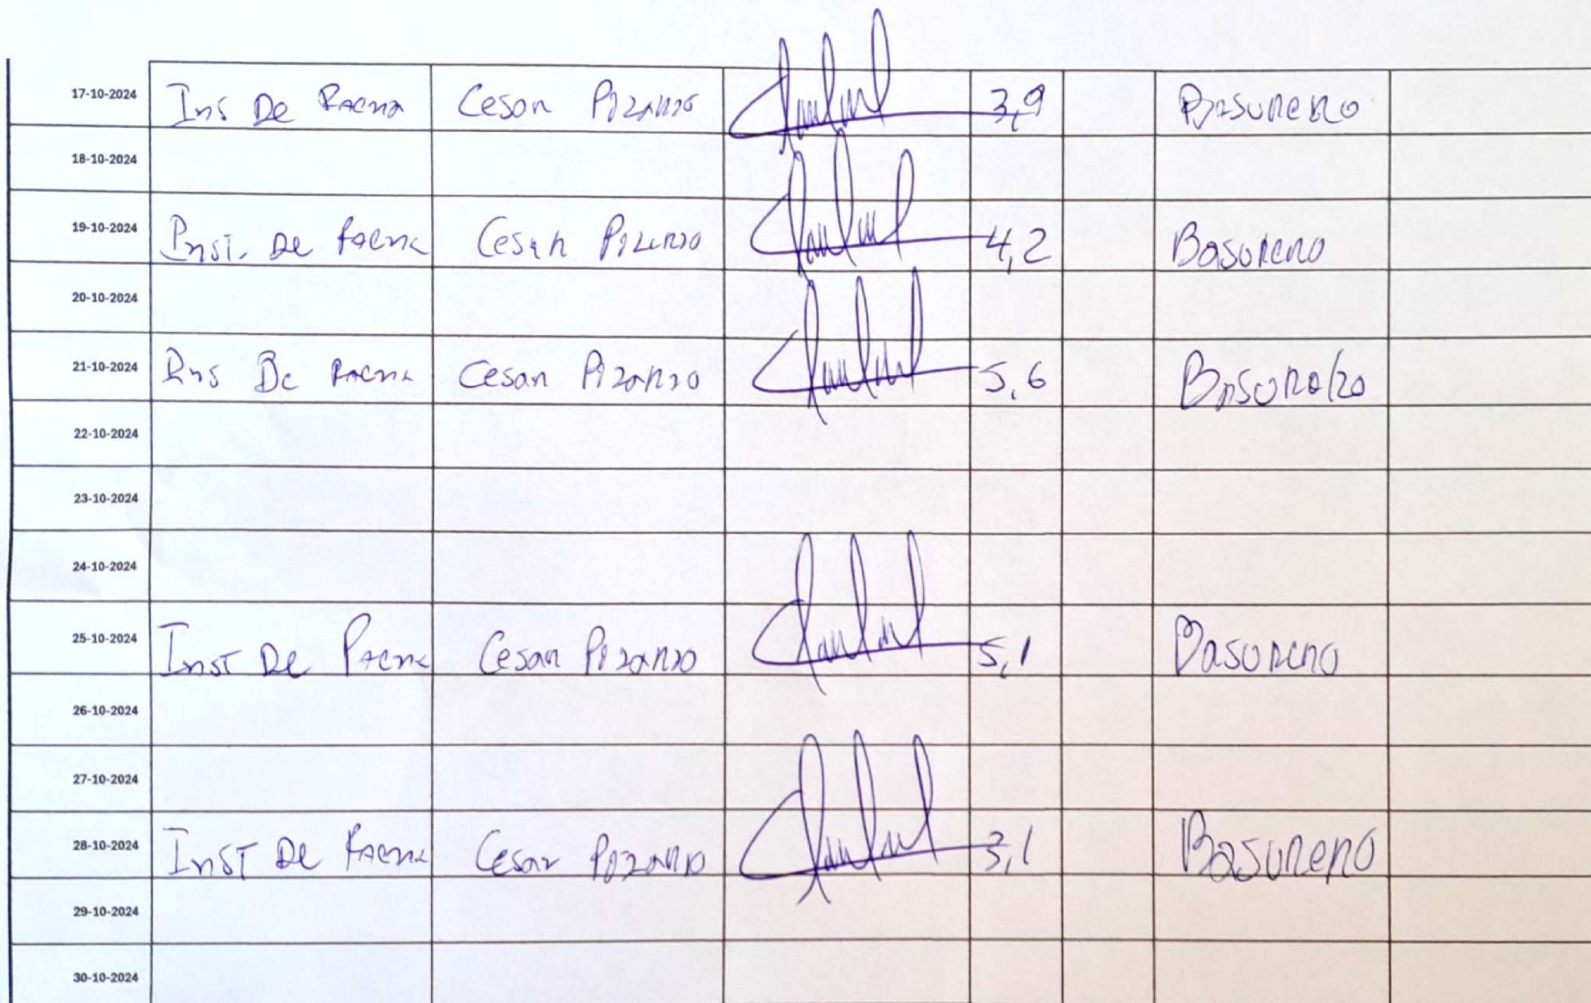 17-10-2024 Ins De Faena Cesar Pizarro 3,9 Basurero
18-10-2024
19-10-2024 Inst. De Faena Cesar Pizarro 4,2 Basurero
20-10-2024
21-10-2024 Ins De Faena Cesar Pizarro 5,6 Basurero
22-10-2024
23-10-2024
24-10-2024
25-10-2024 Inst De Faena Cesar Pizarro 5,1 Basurero
26-10-2024
27-10-2024
28-10-2024 Inst De Faena Cesar Pizarro 3,1 Basurero
29-10-2024
30-10-2024